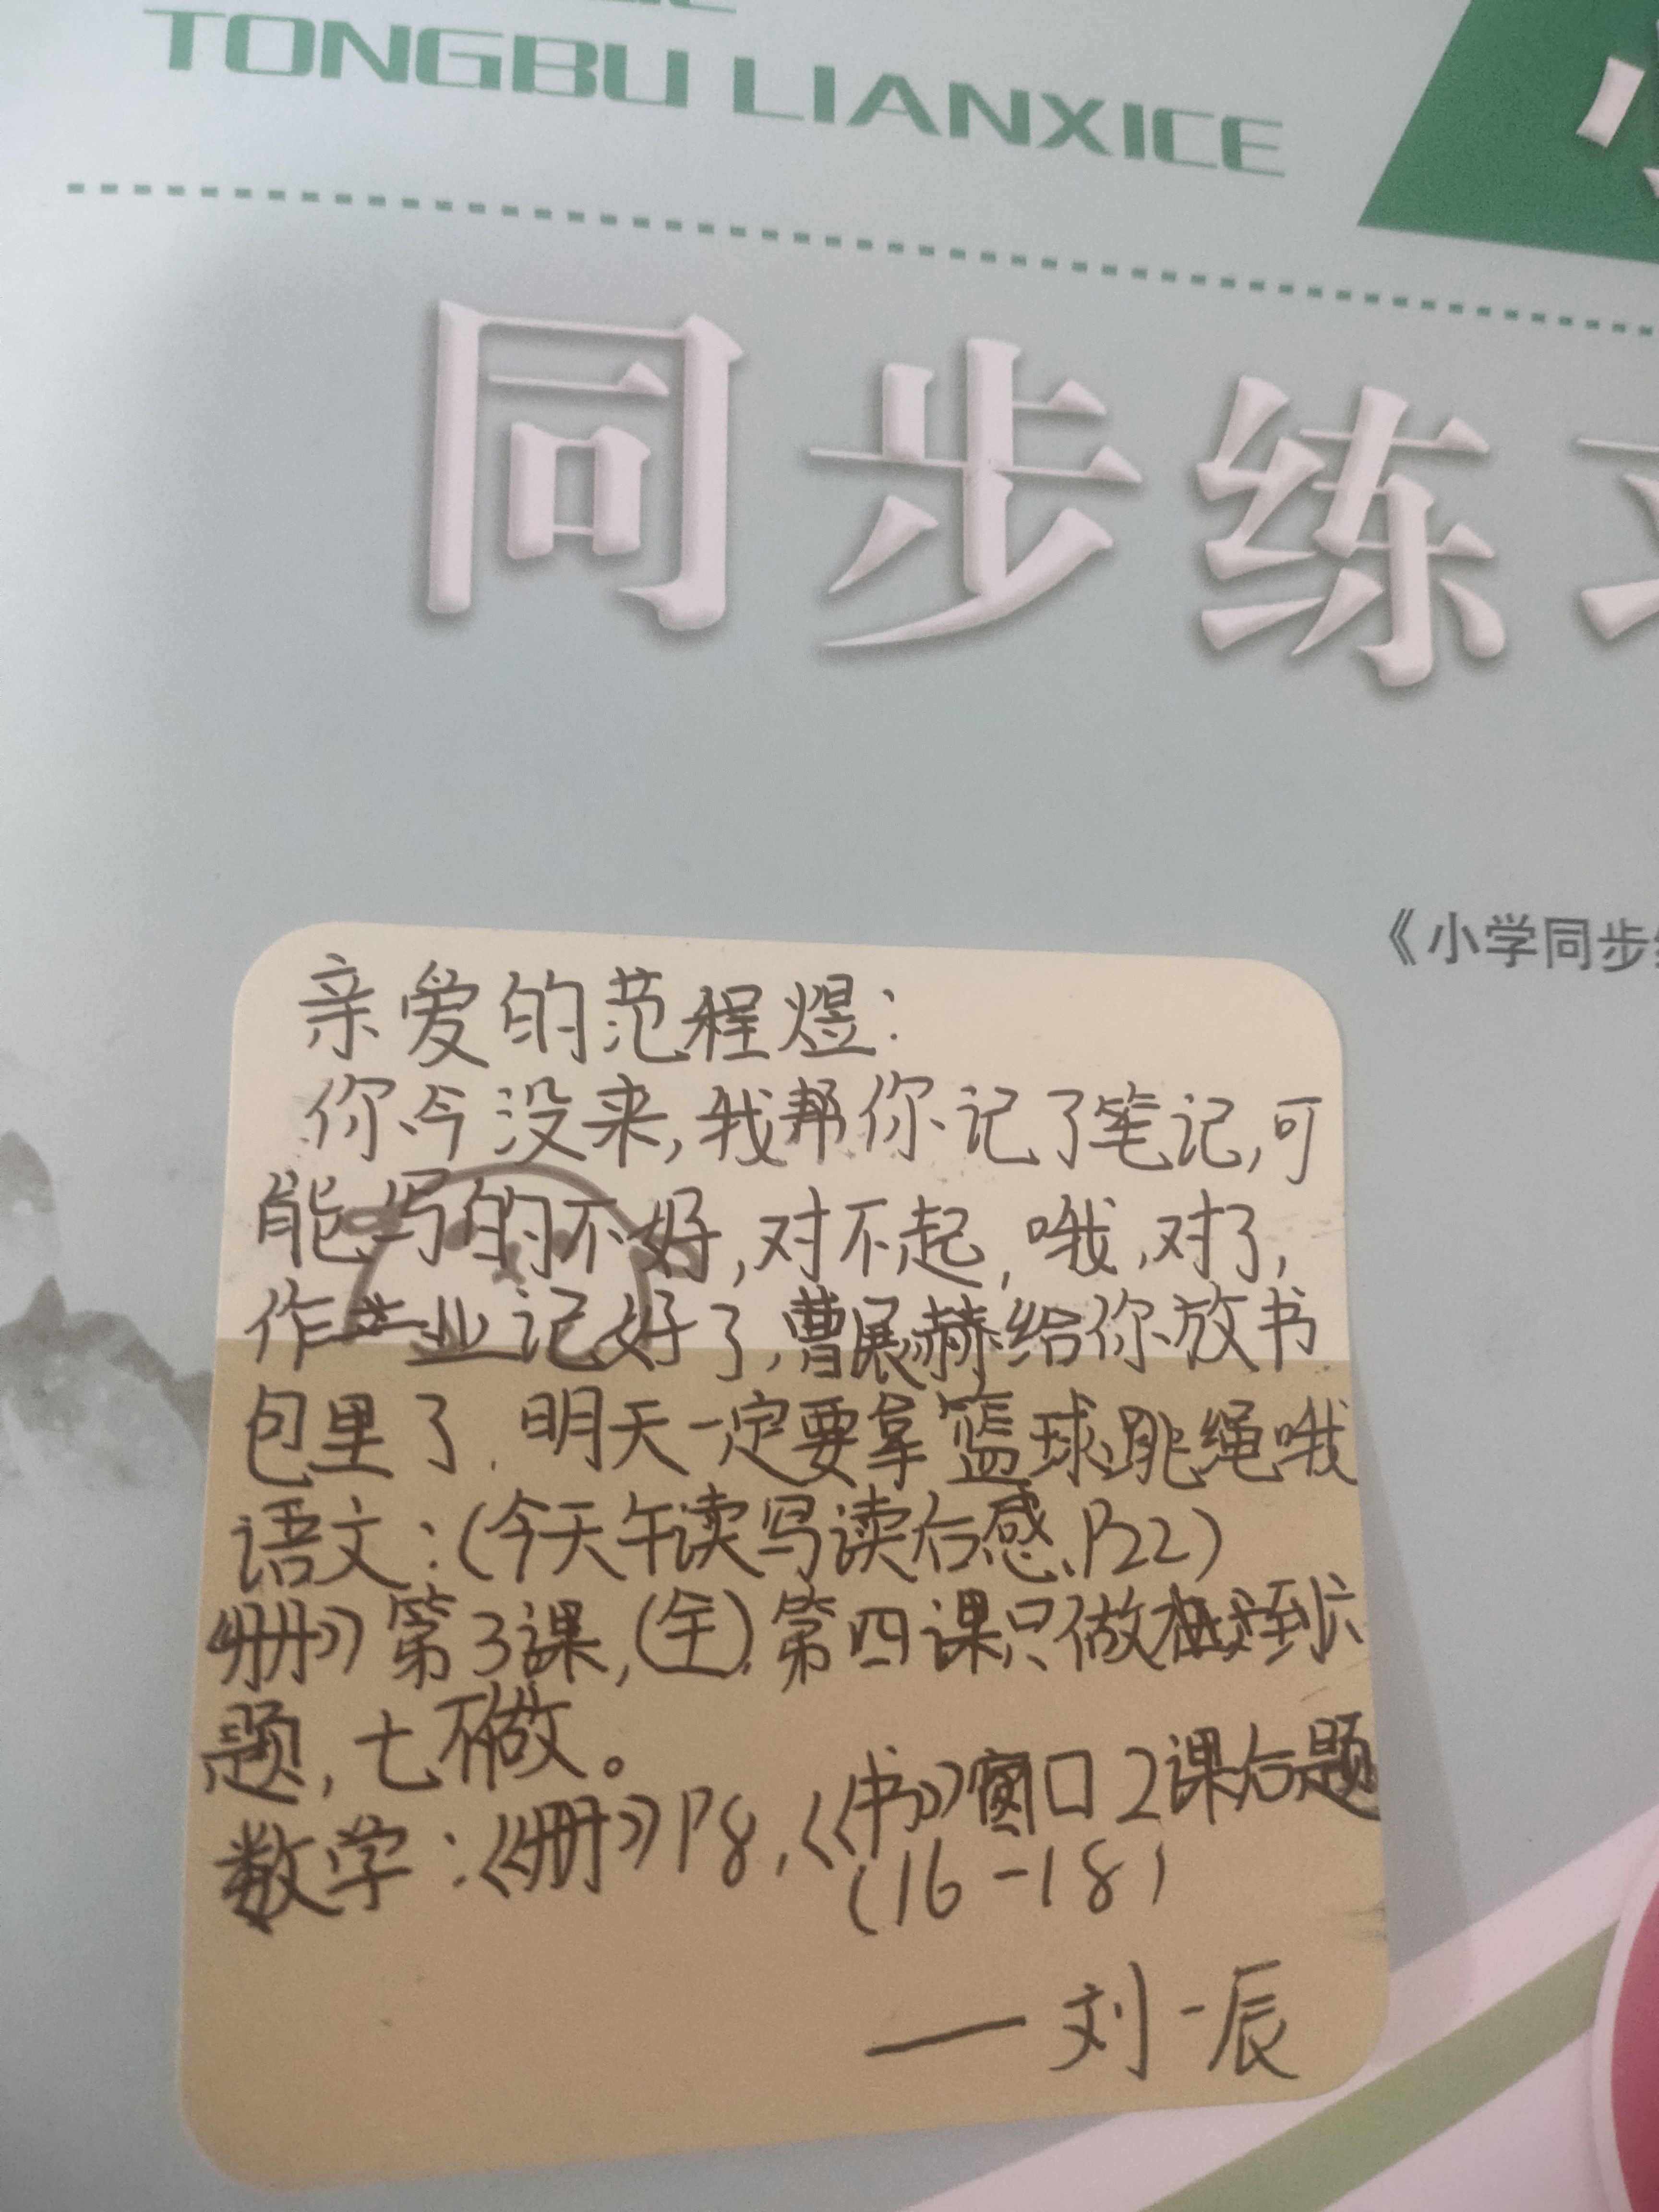 TONGBU LIANXICE
同步练
《小学同步
亲爱的范程煜:
你今没来,我帮你记了笔记,可
能写的不好,对不起,哦,对了,
作业记好了,曹展赫给你放书
包里了.明天一定要拿篮球跳绳哦
语文:(今天午读写读后感、P22)
《册》第3课,(全).第四课只做到六
题,七不做。
数学:《册》P8,《书》窗口2课后题
(16-18)
——刘一辰